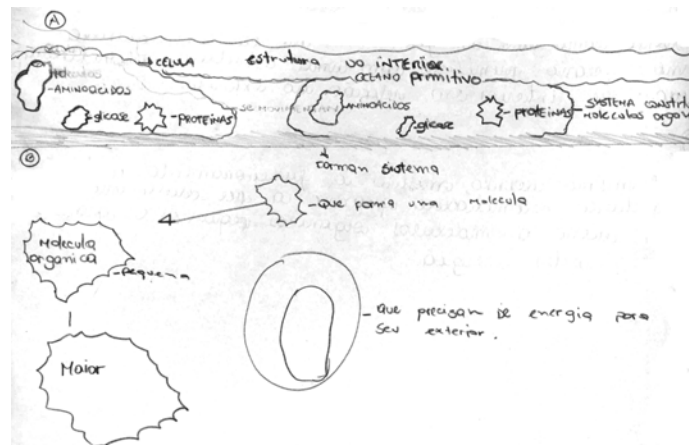 A
CÉLULA estrutura no interior
OCEANO primitivo
AMINOACIDOS
glicose
PROTEÍNAS
AMINOACIDOS
glicose
PROTEÍNAS
SYSTEMA
B
forman sistema
que forma uma molecula
Molecula
organica
pequena
Maior
que precisan de energia para
seu exterior.